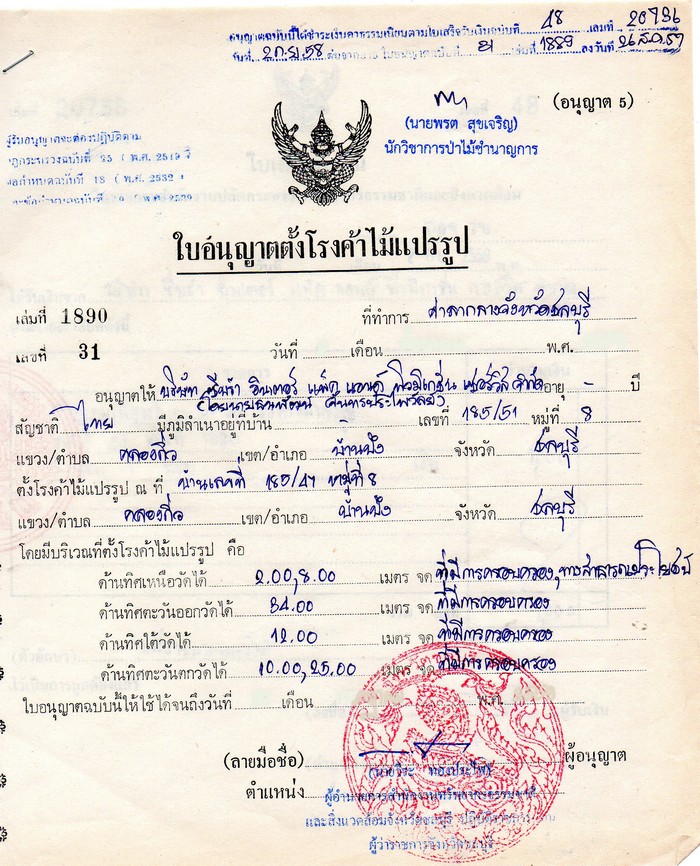 อนุญาตฉบับนี้ได้ชำระเงินค่าธรรมเนียมตามใบเสร็จรับเงินฉบับที่ 48 เลขที่ 20736
วันที่ 2 ก.ย. 58 ใบอนุญาตฉบับที่ เล่มที่ 1889 ลงวันที่
(อนุญาต 5)
(นายพรต สุขเจริญ)
นักวิชาการป่าไม้ชำนาญการ
ผู้รับอนุญาตจะต้องปฏิบัติตาม
กฎกระทรวงฉบับที่ 25 ( พ.ศ. 2519 )
ข้อกำหนดฉบับที่ 18 ( พ.ศ. 2532 )
ใบอนุญาตตั้งโรงค้าไม้แปรรูป
เล่มที่ 1890 ที่ทำการ ศาลากลางจังหวัดชลบุรี
เลขที่ 31 วันที่ เดือน พ.ศ.
อนุญาตให้ บริษัท อินเตอร์ แพ็ค แอนด์ ฟิวมิเกชั่น เซอร์วิส จำกัด อายุ - ปี
สัญชาติ ไทย มีภูมิลำเนาอยู่ที่บ้าน - เลขที่ 185/51 หมู่ที่ 8
แขวง/ตำบล คลองกิ่ว เขต/อำเภอ บ้านบึง จังหวัด ชลบุรี
ตั้งโรงค้าไม้แปรรูป ณ ที่ บ้านเลขที่ 185/47 หมู่ที่ 8
แขวง/ตำบล คลองกิ่ว เขต/อำเภอ บ้านบึง จังหวัด ชลบุรี
โดยมีบริเวณที่ตั้งโรงค้าไม้แปรรูป คือ
ด้านทิศเหนือวัดได้ 2.00,8.00 เมตร จด ที่มีการครอบครอง, ทางสาธารณประโยชน์
ด้านทิศตะวันออกวัดได้ 34.00 เมตร จด ที่มีการครอบครอง
ด้านทิศใต้วัดได้ 12.00 เมตร จด ที่มีการครอบครอง
ด้านทิศตะวันตกวัดได้ 10.00,25.00 เมตร จด ที่มีการครอบครอง
ใบอนุญาตฉบับนี้ให้ใช้ได้จนถึงวันที่ เดือน พ.ศ.
(ลายมือชื่อ) ผู้อนุญาต
(นายวีระ ทองประไพ)
ตำแหน่ง ผู้อำนวยการสำนักงานทรัพยากรธรรมชาติ
และสิ่งแวดล้อมจังหวัดชลบุรี ปฏิบัติราชการแทน
ผู้ว่าราชการจังหวัดชลบุรี